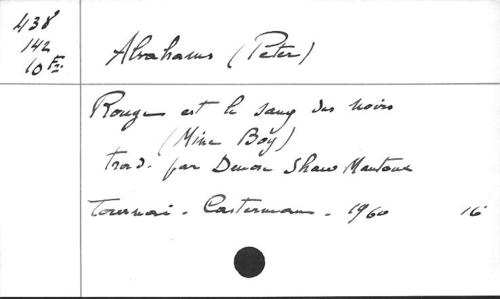 438°
142
10 Fr.
Abrahams (Peter)
Rouge est le sang des noirs
(Mine Boy)
trad. par Denise Shaw Mantoux
Tournai - Casterman - 1960 16°